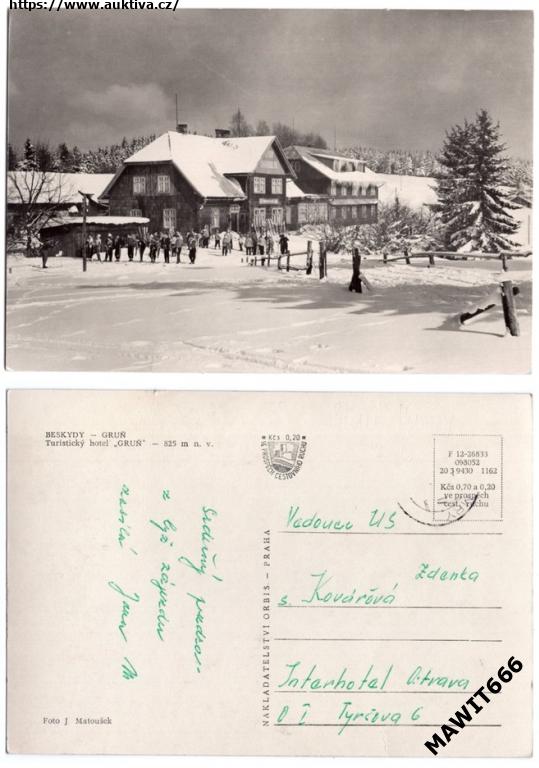 https://www.auktiva.cz/
BESKYDY — GRUŇ
Turistický hotel „GRUŇ“ — 825 m n. v.
Kčs 0,20
VE PROSPĚCH CESTOVNÍHO RUCHU
F 12-26833
098052
20 3 9430 1162
Kčs 0,70 a 0,20
ve prospěch
cest. ruchu
Srdečný pozdra-
z lyž. zájezdu
zasílá Jean M
NAKLADATELSTVÍ ORBIS — PRAHA
Vedoucí US
Zdenka
s. Kovářová
Interhotel Ostrava
O I Tyršova 6
Foto J Matoušek
MAWIT666